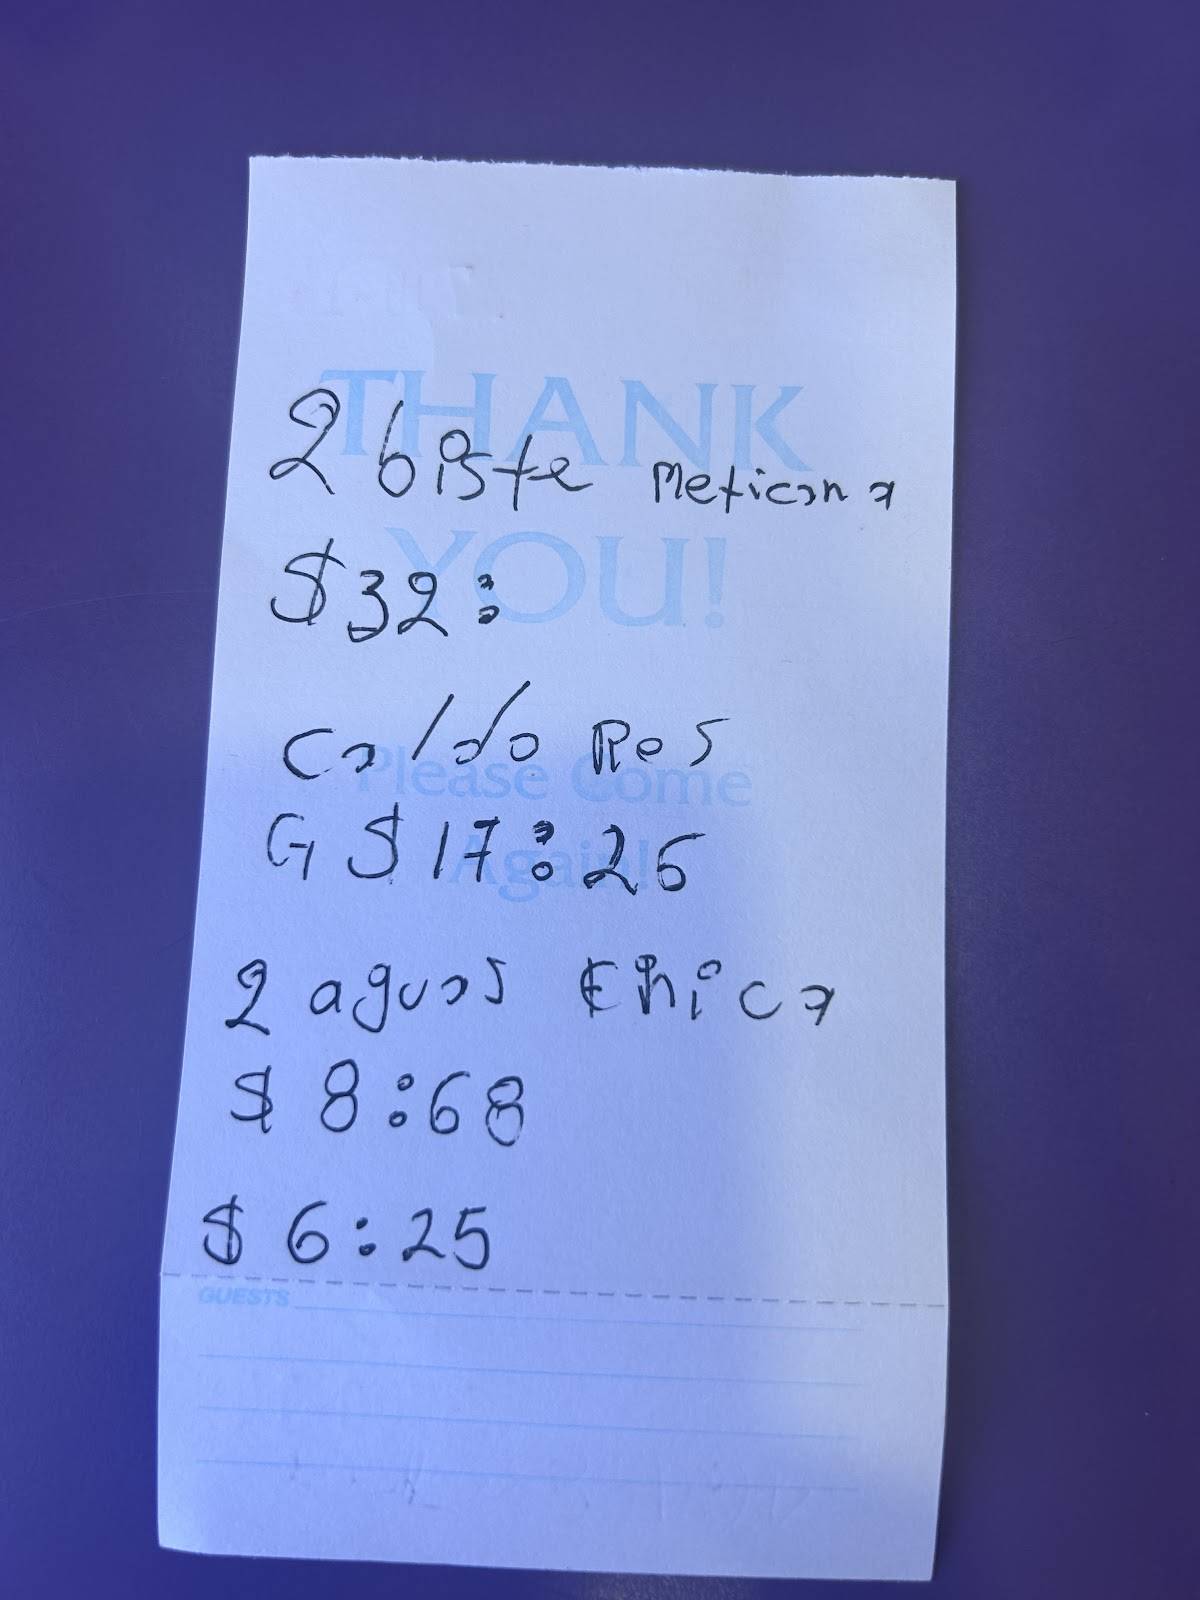 THANK
2 biste Mexicana
YOU!
$32:
Caldo Res
Please Come
G $17:26
Again!
2 aguas chica
$ 8:68
$ 6:25
GUESTS